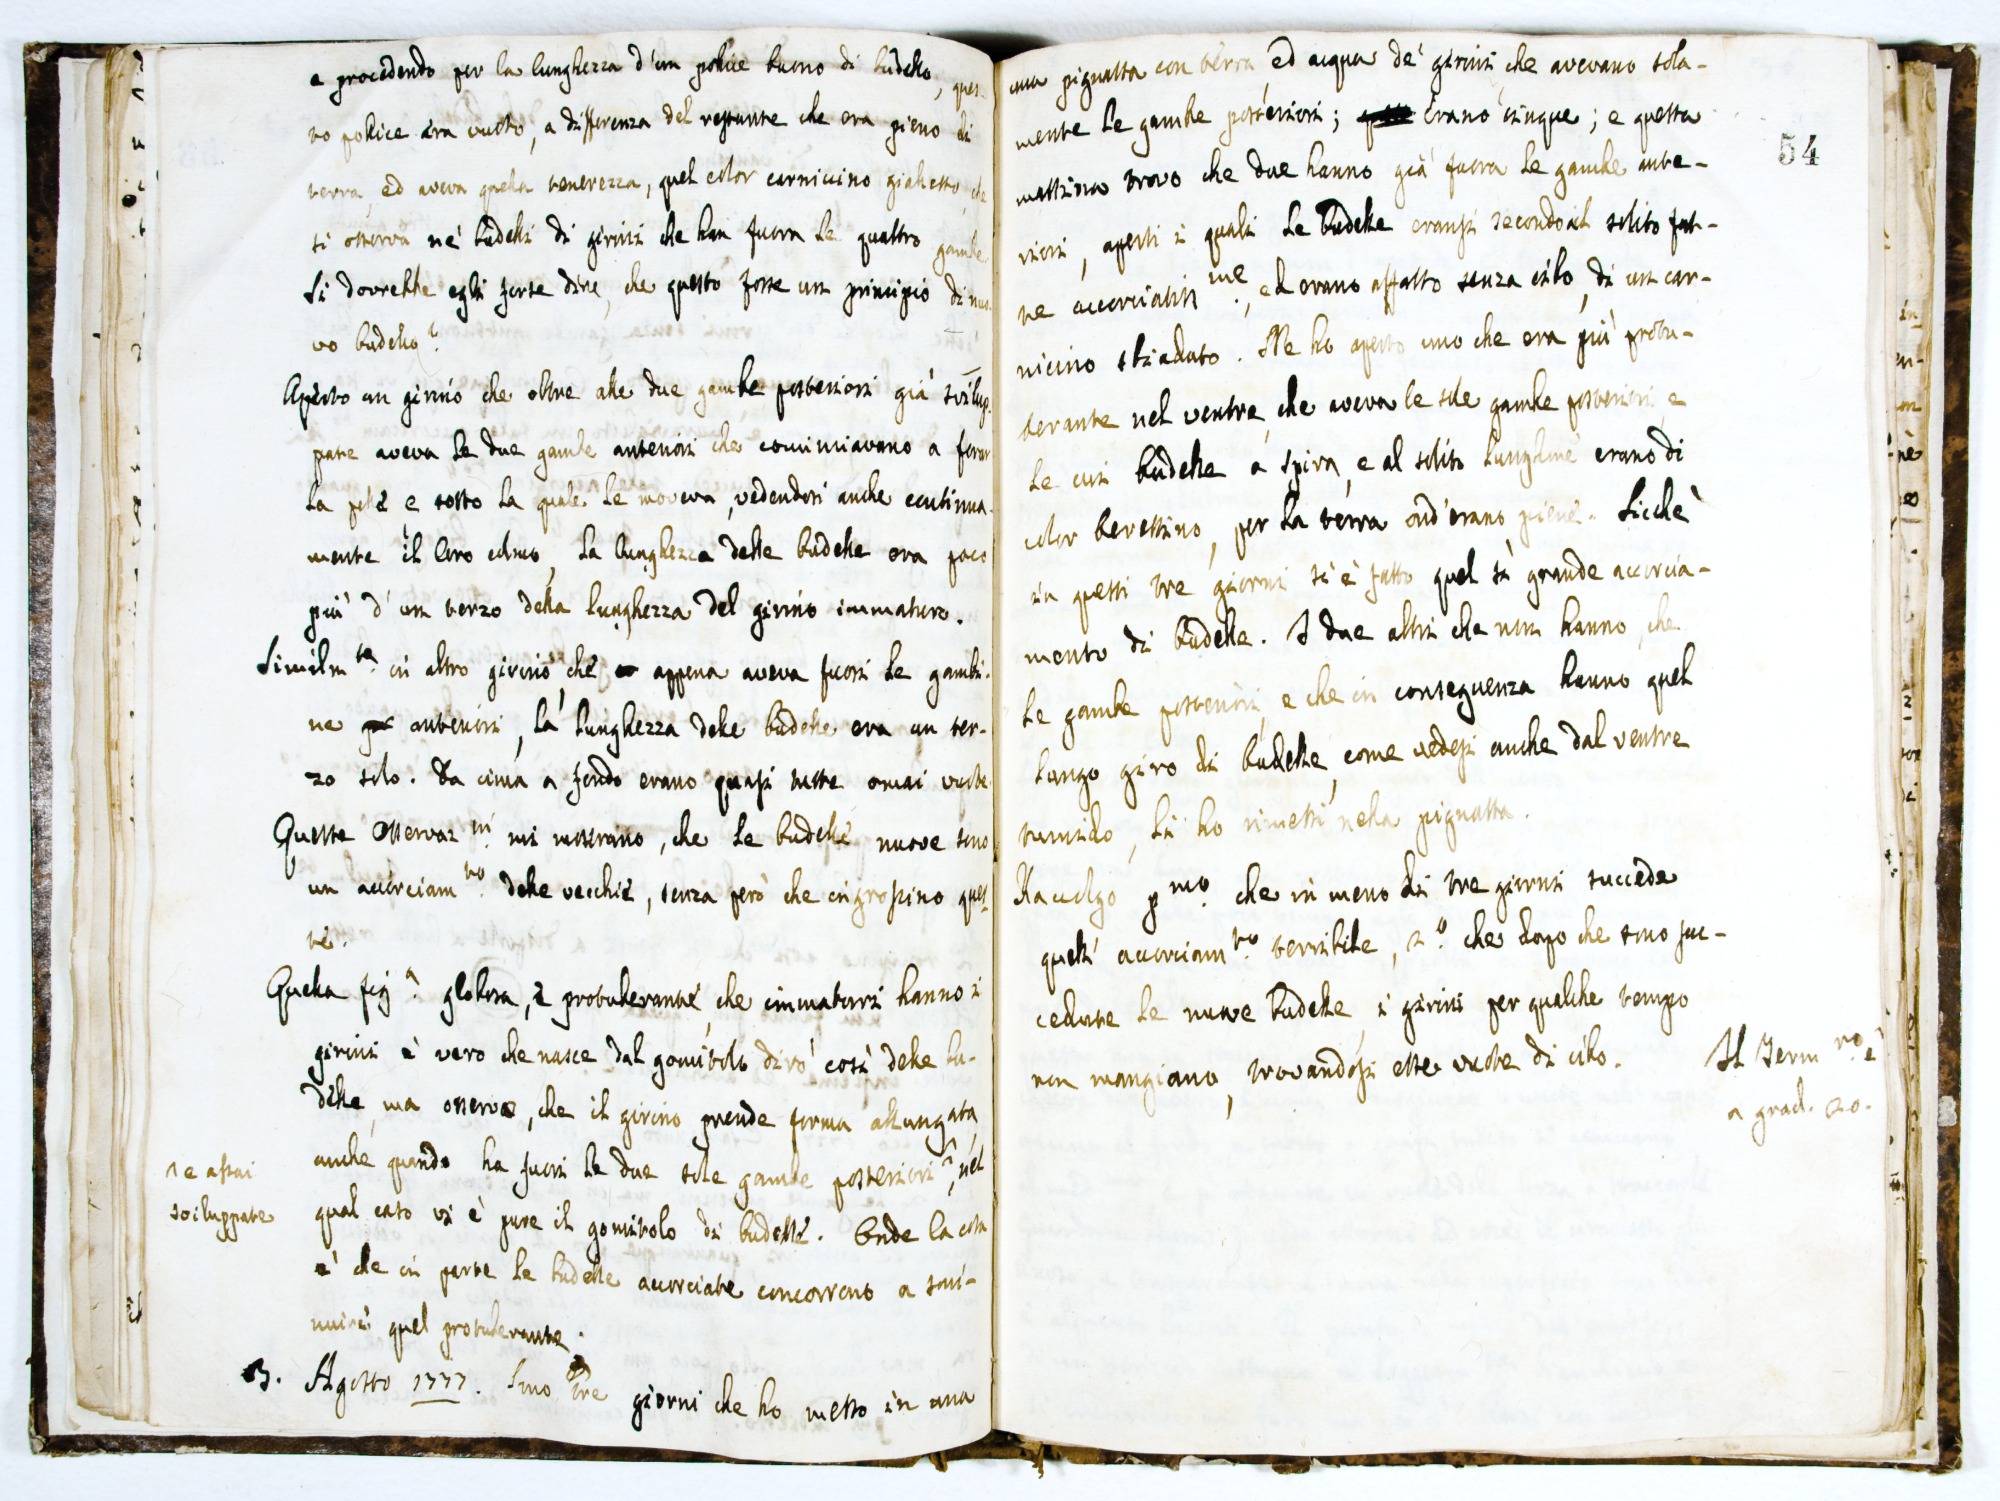 e procedendo per la lunghezza d'un police buono di budello, ques-
to police era vuoto, a differenza del restante che era pieno di
terra, ed aveva quella tenerezza, quel color carnicino gialletto, che
si osserva ne' budelli di girini che han fuora le quattro gambe.
Si dovrebbe egli forse dire, che questo fosse un principio di nuo-
vo budello?
Aperto un girino che oltre alle due gambe posteriori già svilup-
pate aveva le due gambe anteriori che cominciavano a forar
la pelle e sotto la quale le moveva, vedendosi anche continua-
mente il loro colmo, la lunghezza delle budelle era poco
più d'un terzo della lunghezza del girino immaturo.
Similm.te in altro girino che appena aveva fuori le gambi-
ne anteriori, la lunghezza delle budelle era un ter-
zo solo. Da cima a fondo erano quasi tutte omai vuote
Queste osservaz.ni mi mostrano, che le budelle nuove sono
un accorciam.to delle vecchie, senza però che ingrossino ques-
te.
Quella fig.a globosa, e protuberante, che immaturi hanno i
girini è vero che nasce dal gomitolo dirò così delle bu-
delle, ma osservo, che il girino prende forma allungata,
anche quando ha fuori le due sole gambe posteriori, nel
qual caso vi è pure il gomitolo di budelle. Onde la cosa
è che in parte le budelle accorciate concorrono a smi-
nuire quel protuberante.
3. Agosto 1777. Sono tre giorni che ho messo in una
1 e assai
sviluppate
54
una pignatta con terra ed acqua de' girini che avevano sola-
mente le gambe posteriori; erano cinque; e questa
mattina trovo che due hanno già fuora le gambe ante-
riori, aperti i quali le budelle eransi secondo il solito fat-
te accorciatiss.me, ed erano affatto senza cibo, di un car-
nicino sbiadato. Ne ho aperto uno che era più protu-
berante nel ventre, che aveva le sole gambe posteriori, e
le cui budelle a spira, e al solito lunghine erano di
color berettino, per la terra ond'erano piene. Sicchè
in questi tre giorni si è fatto quel sì grande accorcia-
mento di budelle. I due altri che non hanno, che
le gambe posteriori, e che in conseguenza hanno quel
lungo giro di budelle, come vedesi anche dal ventre
tumido, li ho rimessi nella pignatta.
Raccolgo p.mo che in meno di tre giorni succede
quell' accorciam.to terribile, 2.o che dopo che sono suc-
cedute le nuove budelle, i girini per qualche tempo
non mangiano, trovandosi esse vuote di cibo.
Il Term.ro è
a grad. 20.